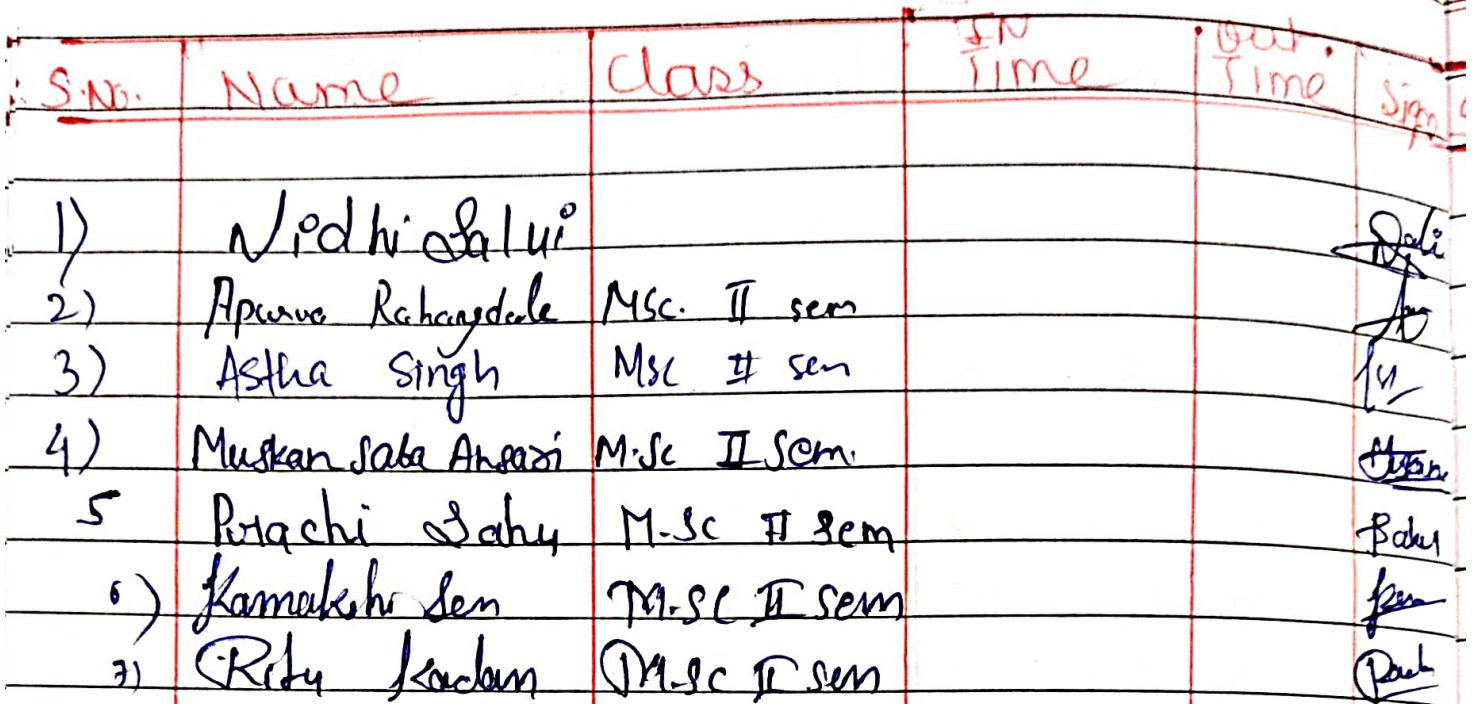 S.No. Name Class IN Time Out Time Sign
1) Nidhi Salui
2) Apurva Rahangdale MSc. II sem
3) Astha Singh Msc II sem
4) Muskan Saba Ansari M.Sc II Sem.
5 Prachi Sahu M.Sc II Sem Sahu
6) Kamakshi Sen M.Sc II Sem
7) Ritu Kadam M.Sc II sem